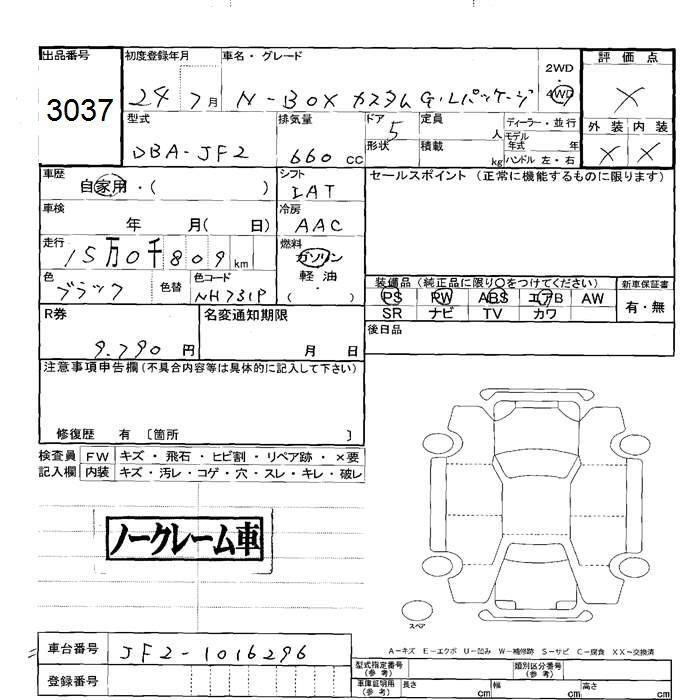 出品番号
3037
初度登録年月
24 7月
車名・グレード
N-BOX カスタム G・Lパッケージ
2WD
・
4WD
評価点
×
外装 内装
× ×
型式
DBA-JF2
排気量
660 cc
ドア
5
形状
定員
人
積載
kg
ディーラー・並行
モデル
年式 年
ハンドル 左・右
車歴
自家用・( )
シフト
IAT
車検
年 月( 日)
冷房
AAC
走行
15万0千809km
燃料
ガソリン
・
軽油
・
( )
色
ブラック
色替
色コード
NH731P
セールスポイント (正常に機能するものに限ります)
装備品(純正品に限り〇をつけてください)
PS PW ABS エアB AW
SR ナビ TV カワ
新車保証書
有・無
後日品
R券
9.790 円
名変通知期限
月 日
注意事項申告欄(不具合内容等は具体的に記入して下さい)
修復歴 有 〔箇所 〕
検査員 FW キズ・飛石・ヒビ割・リペア跡・×要
記入欄 内装 キズ・汚レ・コゲ・穴・スレ・キレ・破レ
ノークレーム車
スペア
A-キズ E-エクボ U-凹み W-補修跡 S-サビ C-腐食 XX-交換済
車台番号
JF2-1016296
登録番号
型式指定番号
(参考)
類別区分番号
(参考)
車庫証明用
(参考)
長さ cm
幅 cm
高さ cm